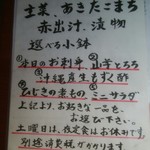 主菜、あきたこまち
赤出汁、漬物
選べる小鉢
①本日のお刺身 ②山芋とろろ
③沖縄産生もずく酢
④ひじきの煮もの ⑤ミニサラダ
上記より、お好きな一品を
お選び下さい。
土曜日は、定食会はお休みです。
別途消費税がかかります